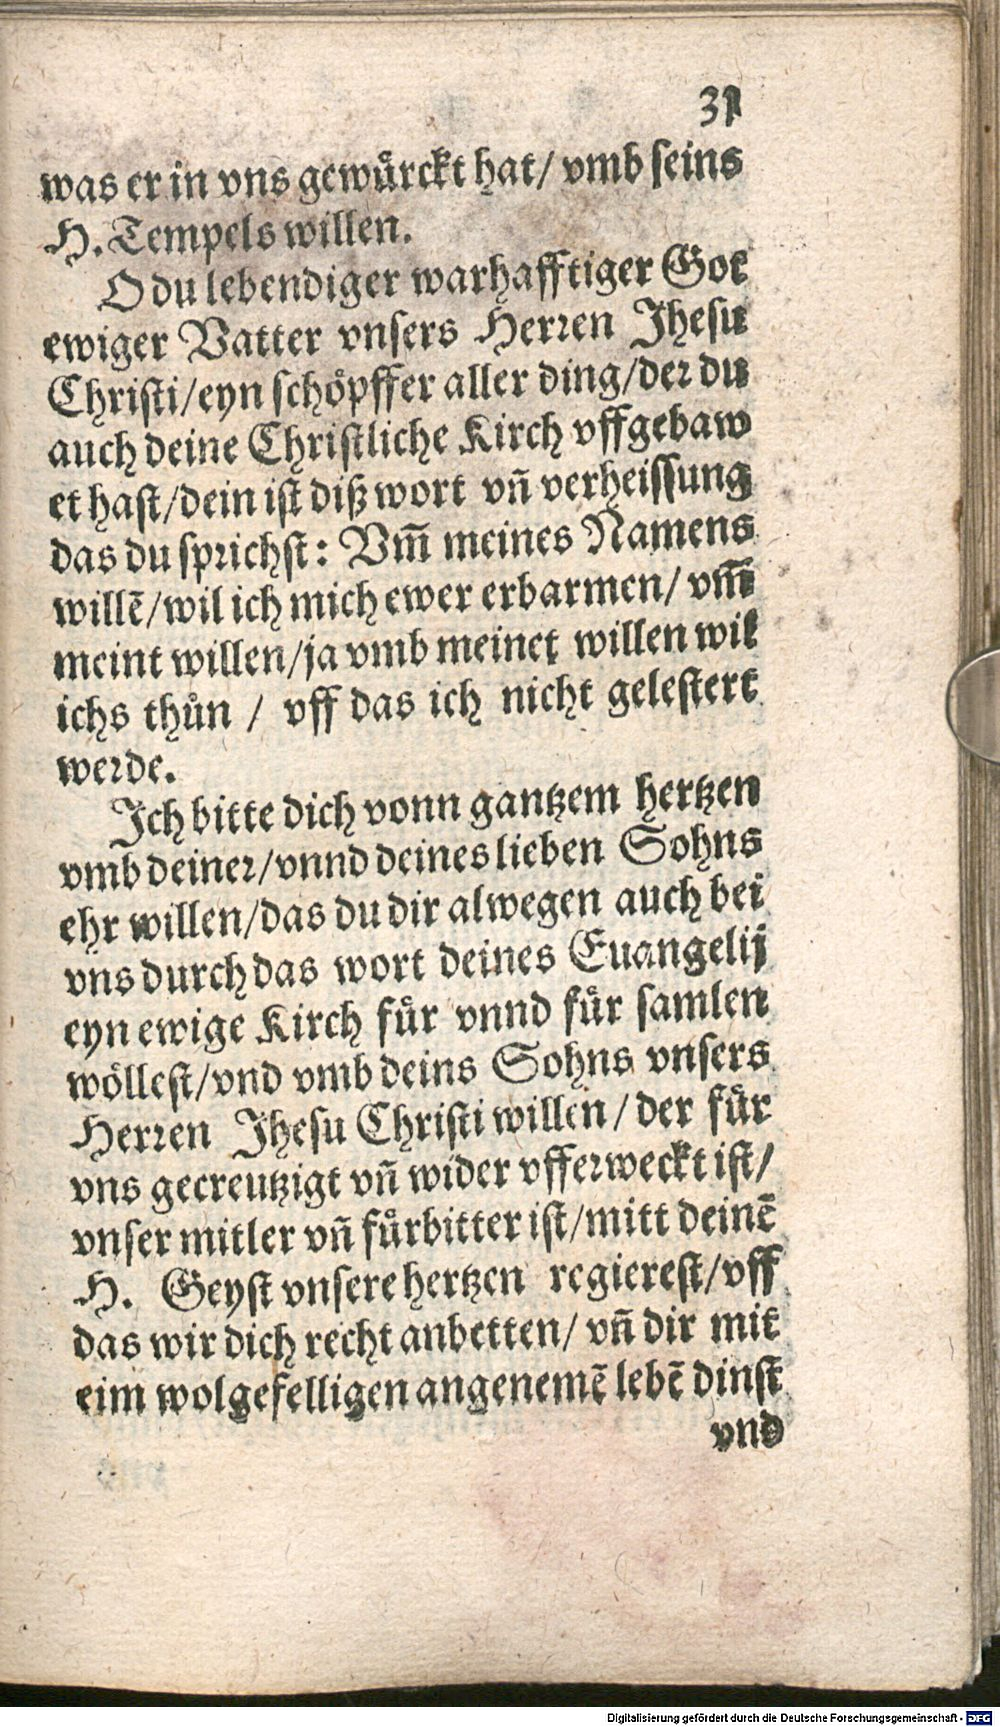 31
was er in vns gewuͤrckt hat/ vmb seins
H. Tempels willen.
O du lebendiger warhafftiger Got
ewiger Vatter vnsers Herren Jhesu
Christi/eyn schoͤpffer aller ding/der du
auch deine Christliche Kirch vffgebaw
et hast/dein ist diß wort vñ verheissung
das du sprichst: Vm̃ meines Namens
willẽ/wil ich mich ewer erbarmen/ vm̃
meint willen/ja vmb meinet willen wil
ichs thuͦn / vff das ich nicht gelestert
werde.
Ich bitte dich vonn gantzem hertzen
vmb deiner/vnnd deines lieben Sohns
ehr willen/das du dir alwegen auch bei
vns durch das wort deines Euangelij
eyn ewige Kirch fuͤr vnnd fuͤr samlen
woͤllest/vnd vmb deins Sohns vnsers
Herren Jhesu Christi willen/ der fuͤr
vns gecreutzigt vñ wider vfferweckt ist/
vnser mitler vñ fuͤrbitter ist/mitt deinẽ
H. Geyst vnsere hertzen regierest/vff
das wir dich recht anbetten/ vñ dir mit
eim wolgefelligen angenemẽ lebẽ dinst
vnd
Digitalisierung gefördert durch die Deutsche Forschungsgemeinschaft - DFG